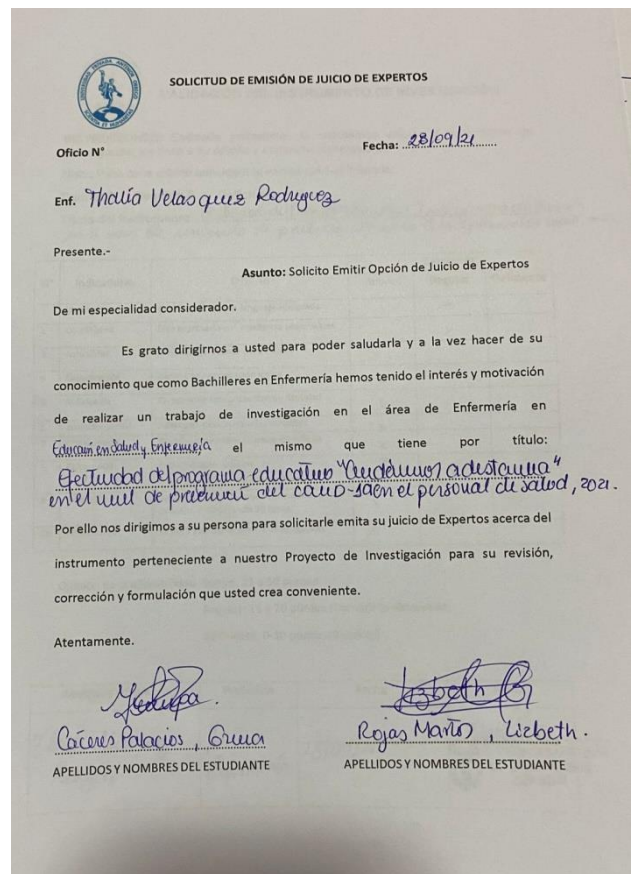 SOLICITUD DE EMISIÓN DE JUICIO DE EXPERTOS
Oficio N° Fecha: 28/09/21
Enf. Thalía Velasquez Rodriguez
Presente.-
Asunto: Solicito Emitir Opción de Juicio de Expertos
De mi especialidad considerador.
Es grato dirigirnos a usted para poder saludarla y a la vez hacer de su
conocimiento que como Bachilleres en Enfermería hemos tenido el interés y motivación
de realizar un trabajo de investigación en el área de Enfermería en
Educación en Salud y Enfermería el mismo que tiene por título:
Efectividad del programa educativo "Cuidémonos a distancia"
en el nivel de prevención del covid-19 en el personal de salud, 2021.
Por ello nos dirigimos a su persona para solicitarle emita su juicio de Expertos acerca del
instrumento perteneciente a nuestro Proyecto de Investigación para su revisión,
corrección y formulación que usted crea conveniente.
Atentamente.
Lizbeth
Cáceres Palacios, Rojas Martos, Lizbeth.
APELLIDOS Y NOMBRES DEL ESTUDIANTE APELLIDOS Y NOMBRES DEL ESTUDIANTE